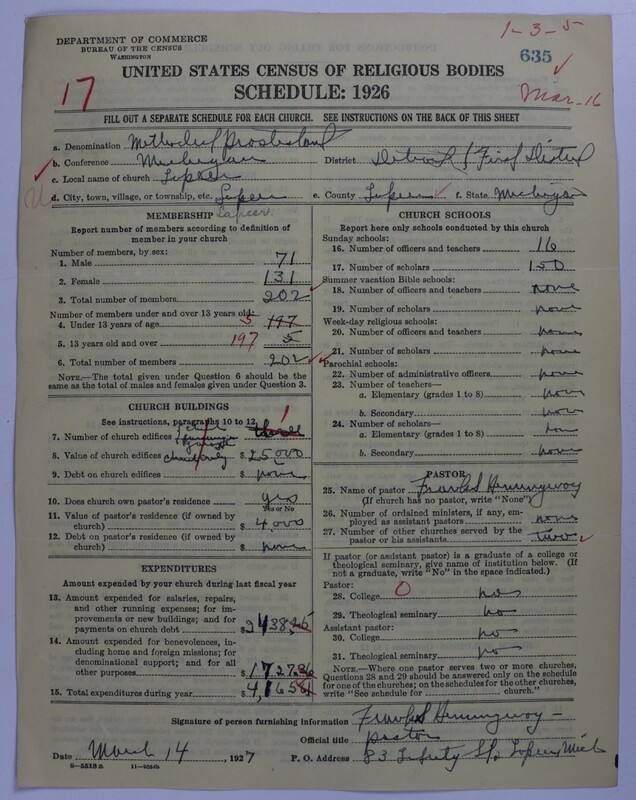 1-3-5
DEPARTMENT OF COMMERCE
BUREAU OF THE CENSUS
WASHINGTON
635
17
UNITED STATES CENSUS OF RELIGIOUS BODIES
SCHEDULE: 1926
Mar-16
FILL OUT A SEPARATE SCHEDULE FOR EACH CHURCH. SEE INSTRUCTIONS ON THE BACK OF THIS SHEET
a. Denomination Methodist Protestant
b. Conference Michigan District Detroit / First District
c. Local name of church Lapeer
d. City, town, village, or township, etc. Lapeer e. County Lapeer f. State Michigan
Lapeer
MEMBERSHIP
Report number of members according to definition of member in your church
Number of members, by sex:
1. Male 71
2. Female 131
3. Total number of members 202
Number of members under and over 13 years old:
4. Under 13 years of age 5 197
5. 13 years old and over 197 5
6. Total number of members 202
NOTE.—The total given under Question 6 should be the same as the total of males and females given under Question 3.
CHURCH BUILDINGS
See instructions, paragraphs 10 to 12
7. Number of church edifices 1
8. Value of church edifices $25,000
9. Debt on church edifices $ none
10. Does church own pastor's residence yes
Yes or No
11. Value of pastor's residence (if owned by church) $4,000
12. Debt on pastor's residence (if owned by church) $ none
EXPENDITURES
Amount expended by your church during last fiscal year
13. Amount expended for salaries, repairs, and other running expenses; for improvements or new buildings; and for payments on church debt $2438
14. Amount expended for benevolences, including home and foreign missions; for denominational support; and for all other purposes $1727
15. Total expenditures during year $4,165
CHURCH SCHOOLS
Report here only schools conducted by this church
Sunday schools:
16. Number of officers and teachers 16
17. Number of scholars 150
Summer vacation Bible schools:
18. Number of officers and teachers none
19. Number of scholars none
Week-day religious schools:
20. Number of officers and teachers none
21. Number of scholars none
Parochial schools:
22. Number of administrative officers none
23. Number of teachers—
a. Elementary (grades 1 to 8) none
b. Secondary none
24. Number of scholars—
a. Elementary (grades 1 to 8) non
b. Secondary none
PASTOR
25. Name of pastor Frank S Hemingway
(If church has no pastor, write "None")
26. Number of ordained ministers, if any, employed as assistant pastors none
27. Number of other churches served by the pastor or his assistants two
If pastor (or assistant pastor) is a graduate of a college or theological seminary, give name of institution below. (If not a graduate, write "No" in the space indicated.)
Pastor:
28. College 0 no
29. Theological seminary no
Assistant pastor:
30. College no
31. Theological seminary no
NOTE.—Where one pastor serves two or more churches, Questions 28 and 29 should be answered only on the schedule for one of the churches; on the schedules for the other churches, write "See schedule for church."
Signature of person furnishing information Frank S Hemingway
Official title pastor
Date March 14, 1927 P. O. Address 83 St, Lapeer Mich
8-5518 a 11-9554b